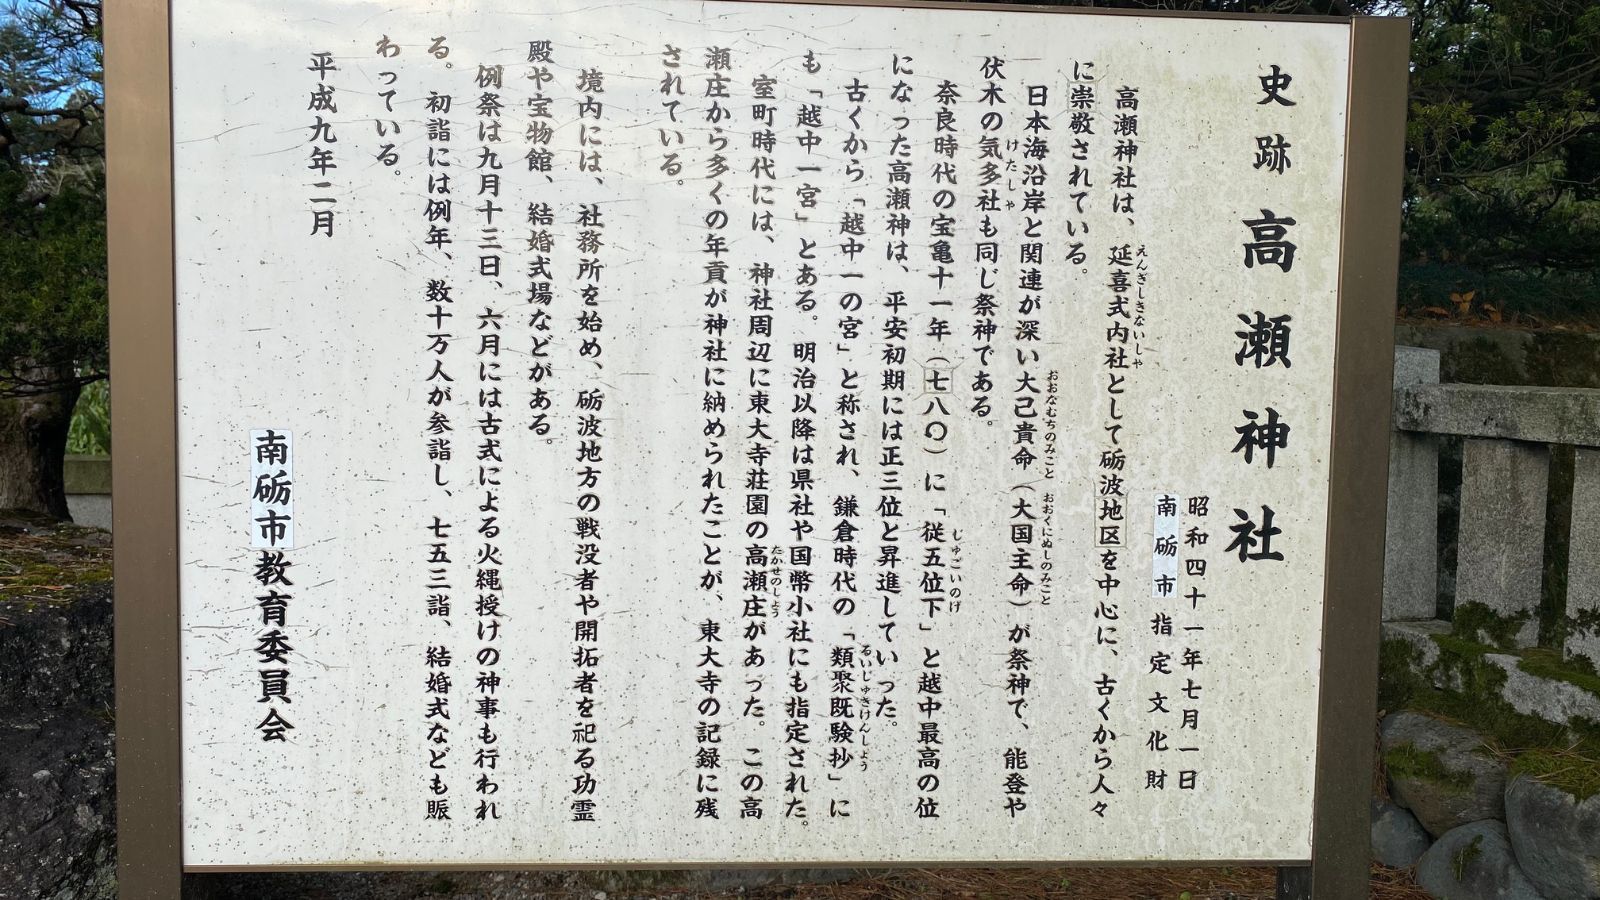 史跡高瀬神社
昭和四十一年七月一日
南砺市指定文化財
高瀬神社は、延喜式内社として砺波地区を中心に、古くから人々
えんぎしきないしゃ
に崇敬されている。
日本海沿岸と関連が深い大己貴命（大国主命）が祭神で、能登や
おおなむちのみこと
おおくにぬしのみこと
伏木の気多社も同じ祭神である。
けたしゃ
奈良時代の宝亀十一年（七八〇）に「従五位下」と越中最高の位
じゅごいのげ
になった高瀬神は、平安初期には正三位と昇進していった。
古くから「越中一の宮」と称され、鎌倉時代の「類聚既験抄」に
るいじゅきけんしょう
も「越中一宮」とある。明治以降は県社や国幣小社にも指定された。
室町時代には、神社周辺に東大寺荘園の高瀬庄があった。この高
たかせのしょう
瀬庄から多くの年貢が神社に納められたことが、東大寺の記録に残
されている。
境内には、社務所を始め、砺波地方の戦没者や開拓者を祀る功霊
殿や宝物館、結婚式場などがある。
例祭は九月十三日、六月には古式による火縄授けの神事も行われ
る。初詣には例年、数十万人が参詣し、七五三詣、結婚式なども賑
わっている。
平成九年二月
南砺市教育委員会